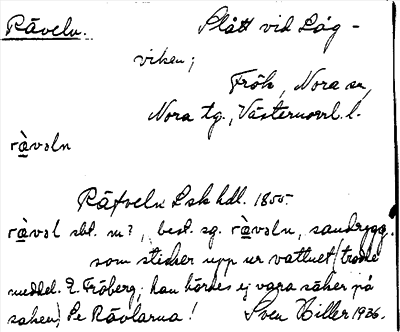 Räveln. Slått vid Låg-
viken;
Frök, Nora sn,
Nora tg., Västernorrl. l.
rävəln
Räfveln Lsk hdl. 1855.
rävəl sbt. m?, best. sg. rävəln, sandrygg.
som sticker upp ur vattnet/trodde
meddel. E. Fröberg; han hördes ej vara säker på
saken; Se Rävlarna! Sven Hiller 1936.